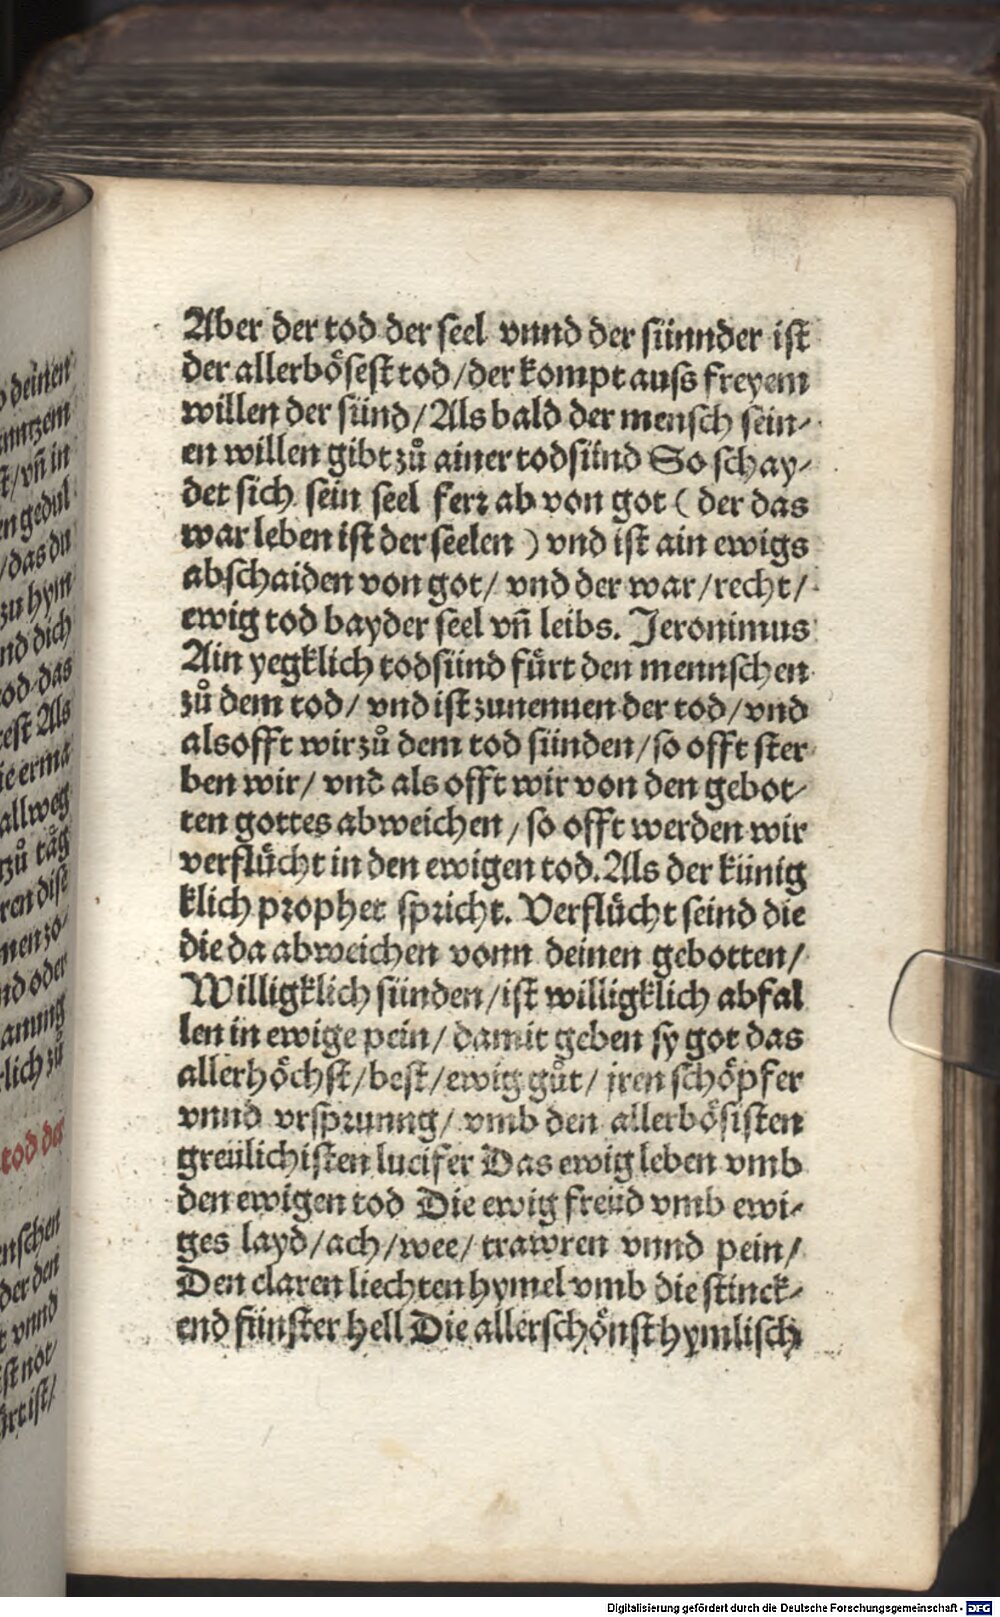 Aber der tod der seel vnnd der sünnder ist
der allerbösest tod/der kompt auss freyem
willen der sünd/Als bald der mensch sein-
en willen gibt zů ainer todsünd So schay-
det sich sein seel ferr ab von got ( der das
war leben ist der seelen ) vnd ist ain ewigs
abschaiden von got/ vnd der war/recht/
ewig tod bayder seel vñ leibs. Jeronimus
Ain yegklich todsünd fürt den mennschen
zů dem tod/ vnd ist zunennen der tod/vnd
als offt wir zů dem tod sünden/so offt ster
ben wir/ vnd als offt wir von den gebot-
ten gottes abweichen/ so offt werden wir
verflücht in den ewigen tod. Als der künig
klich prophet spricht. Verflücht seind die
die da abweichen vonn deinen gebotten/
Willigklich sünden/ist willigklich abfal
len in ewige pein/ damit geben sy got das
allerhöchst/best/ewig gůt/ jren schöpfer
vnnd vrsprunng/ vmb den allerbösisten
greülichisten lucifer Das ewig leben vmb
den ewigen tod Die ewig freüd vmb ewi-
ges layd/ach/wee/ trawren vnnd pein/
Den claren liechten hymel vmb die stinck-
end fünster hell Die allerschönst hymlisch
Digitalisierung gefördert durch die Deutsche Forschungsgemeinschaft - DFG